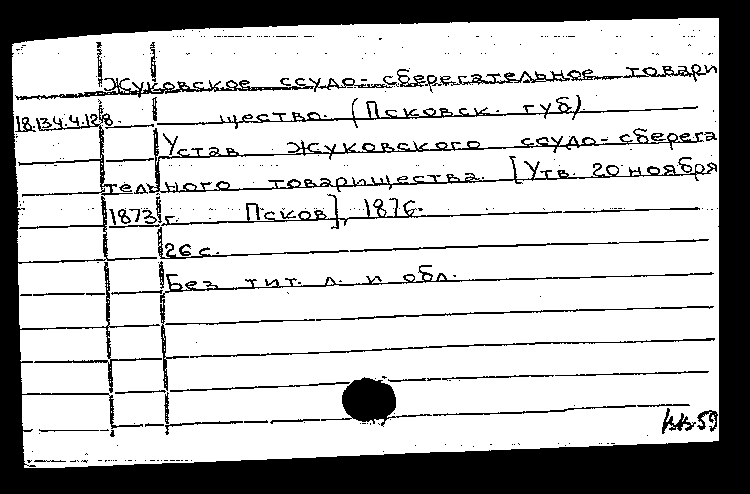 Жуковское ссудо-сберегательное товари
18.134.4.128. щество. (Псковск. губ)
Устав Жуковского ссудо-сберега
тельного товарищества. [Утв. 20 ноября
1873 г. Псков], 1876.
26 с.
Без тит. л. и обл.